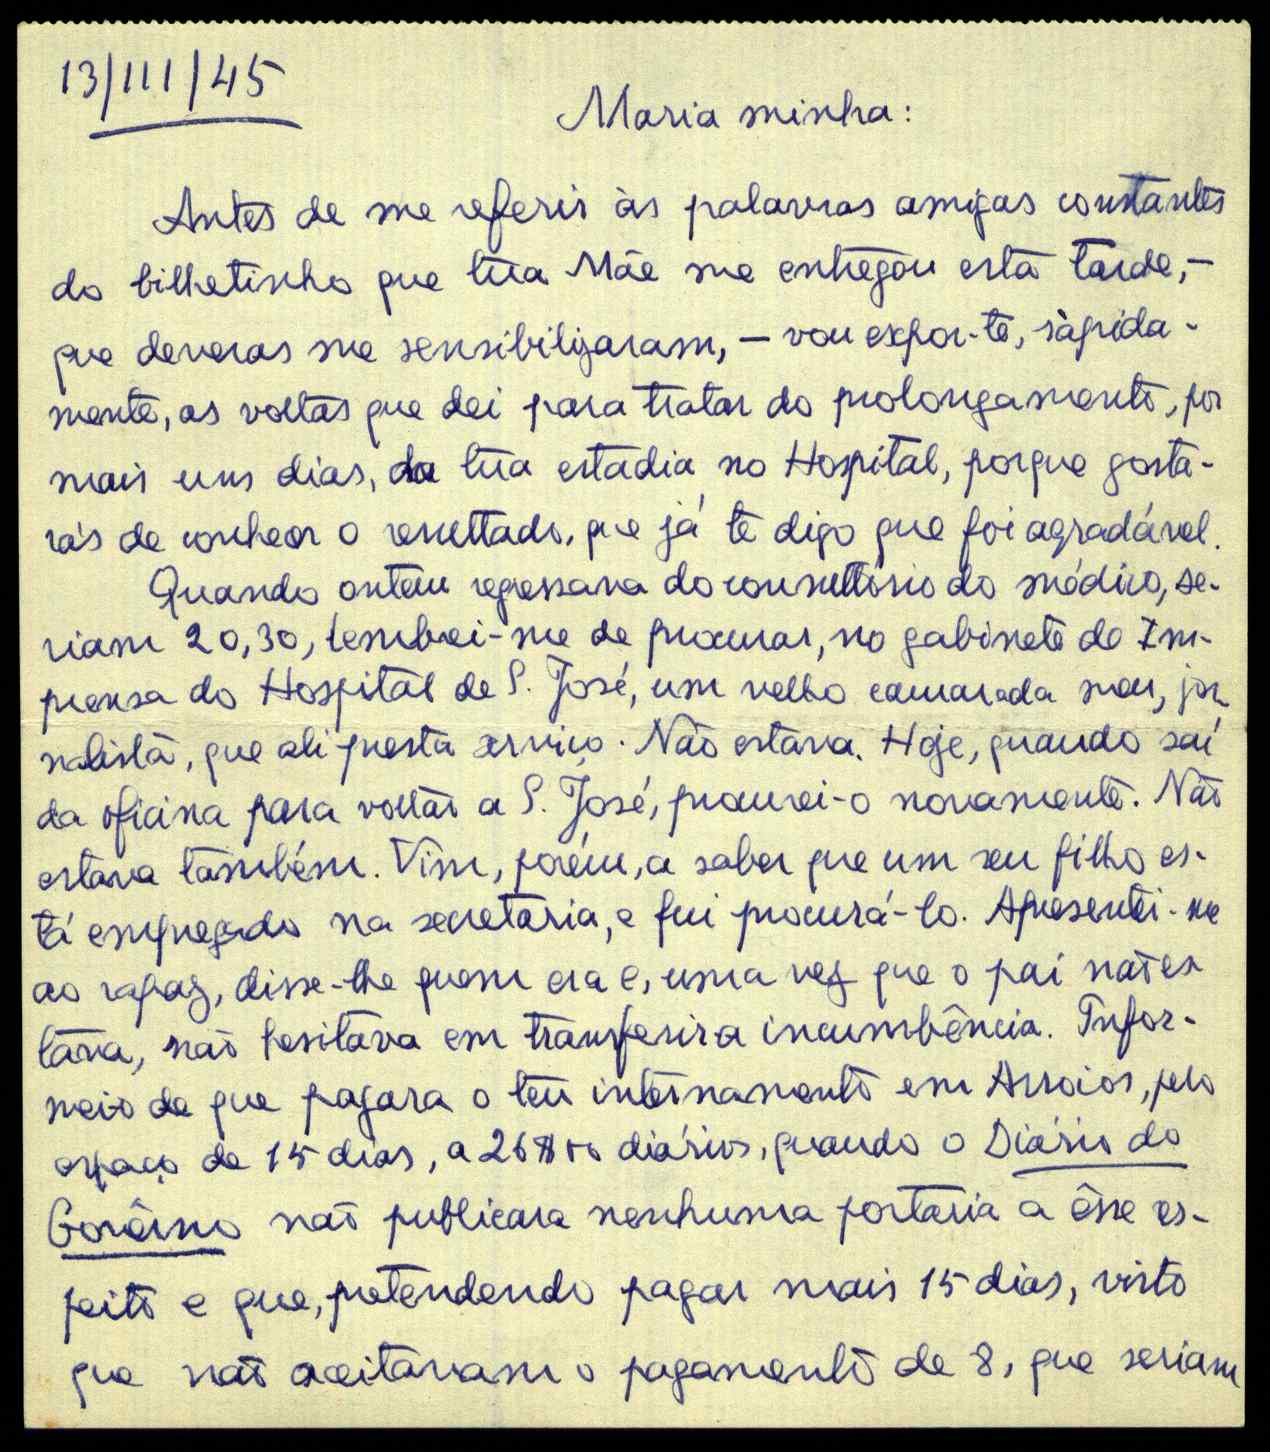 13/III/45
Maria minha:
Antes de me referir às palavras amigas constantes
do bilhetinho que tua Mãe me entregou esta tarde, –
que deveras me sensibilizaram, – vou expor-te, ràpida-
mente, as voltas que dei para tratar do prolongamento, por
mais uns dias, da tua estadia no Hospital, porque gosta-
rás de conhecer o resultado, que já te digo que foi agradável.
Quando ontem regressava do consultório do médico, se-
riam 20,30, lembrei-me de procurar, no gabinete de Im-
prensa do Hospital de S. José, um velho camarada meu, jor-
nalista, que ali presta serviço. Não estava. Hoje, quando saí
da oficina para voltar a S. José, procurei-o novamente. Não
estava também. Vim, porém, a saber que um seu filho es-
tá empregado na secretaria, e fui procurá-lo. Apresentei-me
ao rapaz, disse-lhe quem era e, uma vez que o pai não es-
tava, não hesitava em transferir a incumbência. Infor-
mei-o de que pagara o teu internamento em Arroios, pelo
espaço de 15 dias, a 26$00 diários, quando o Diário do
Govêrno não publicara nenhuma portaria a êsse es-
peito e que, pretendendo pagar mais 15 dias, visto
que não aceitavam o pagamento de 8, que seriam